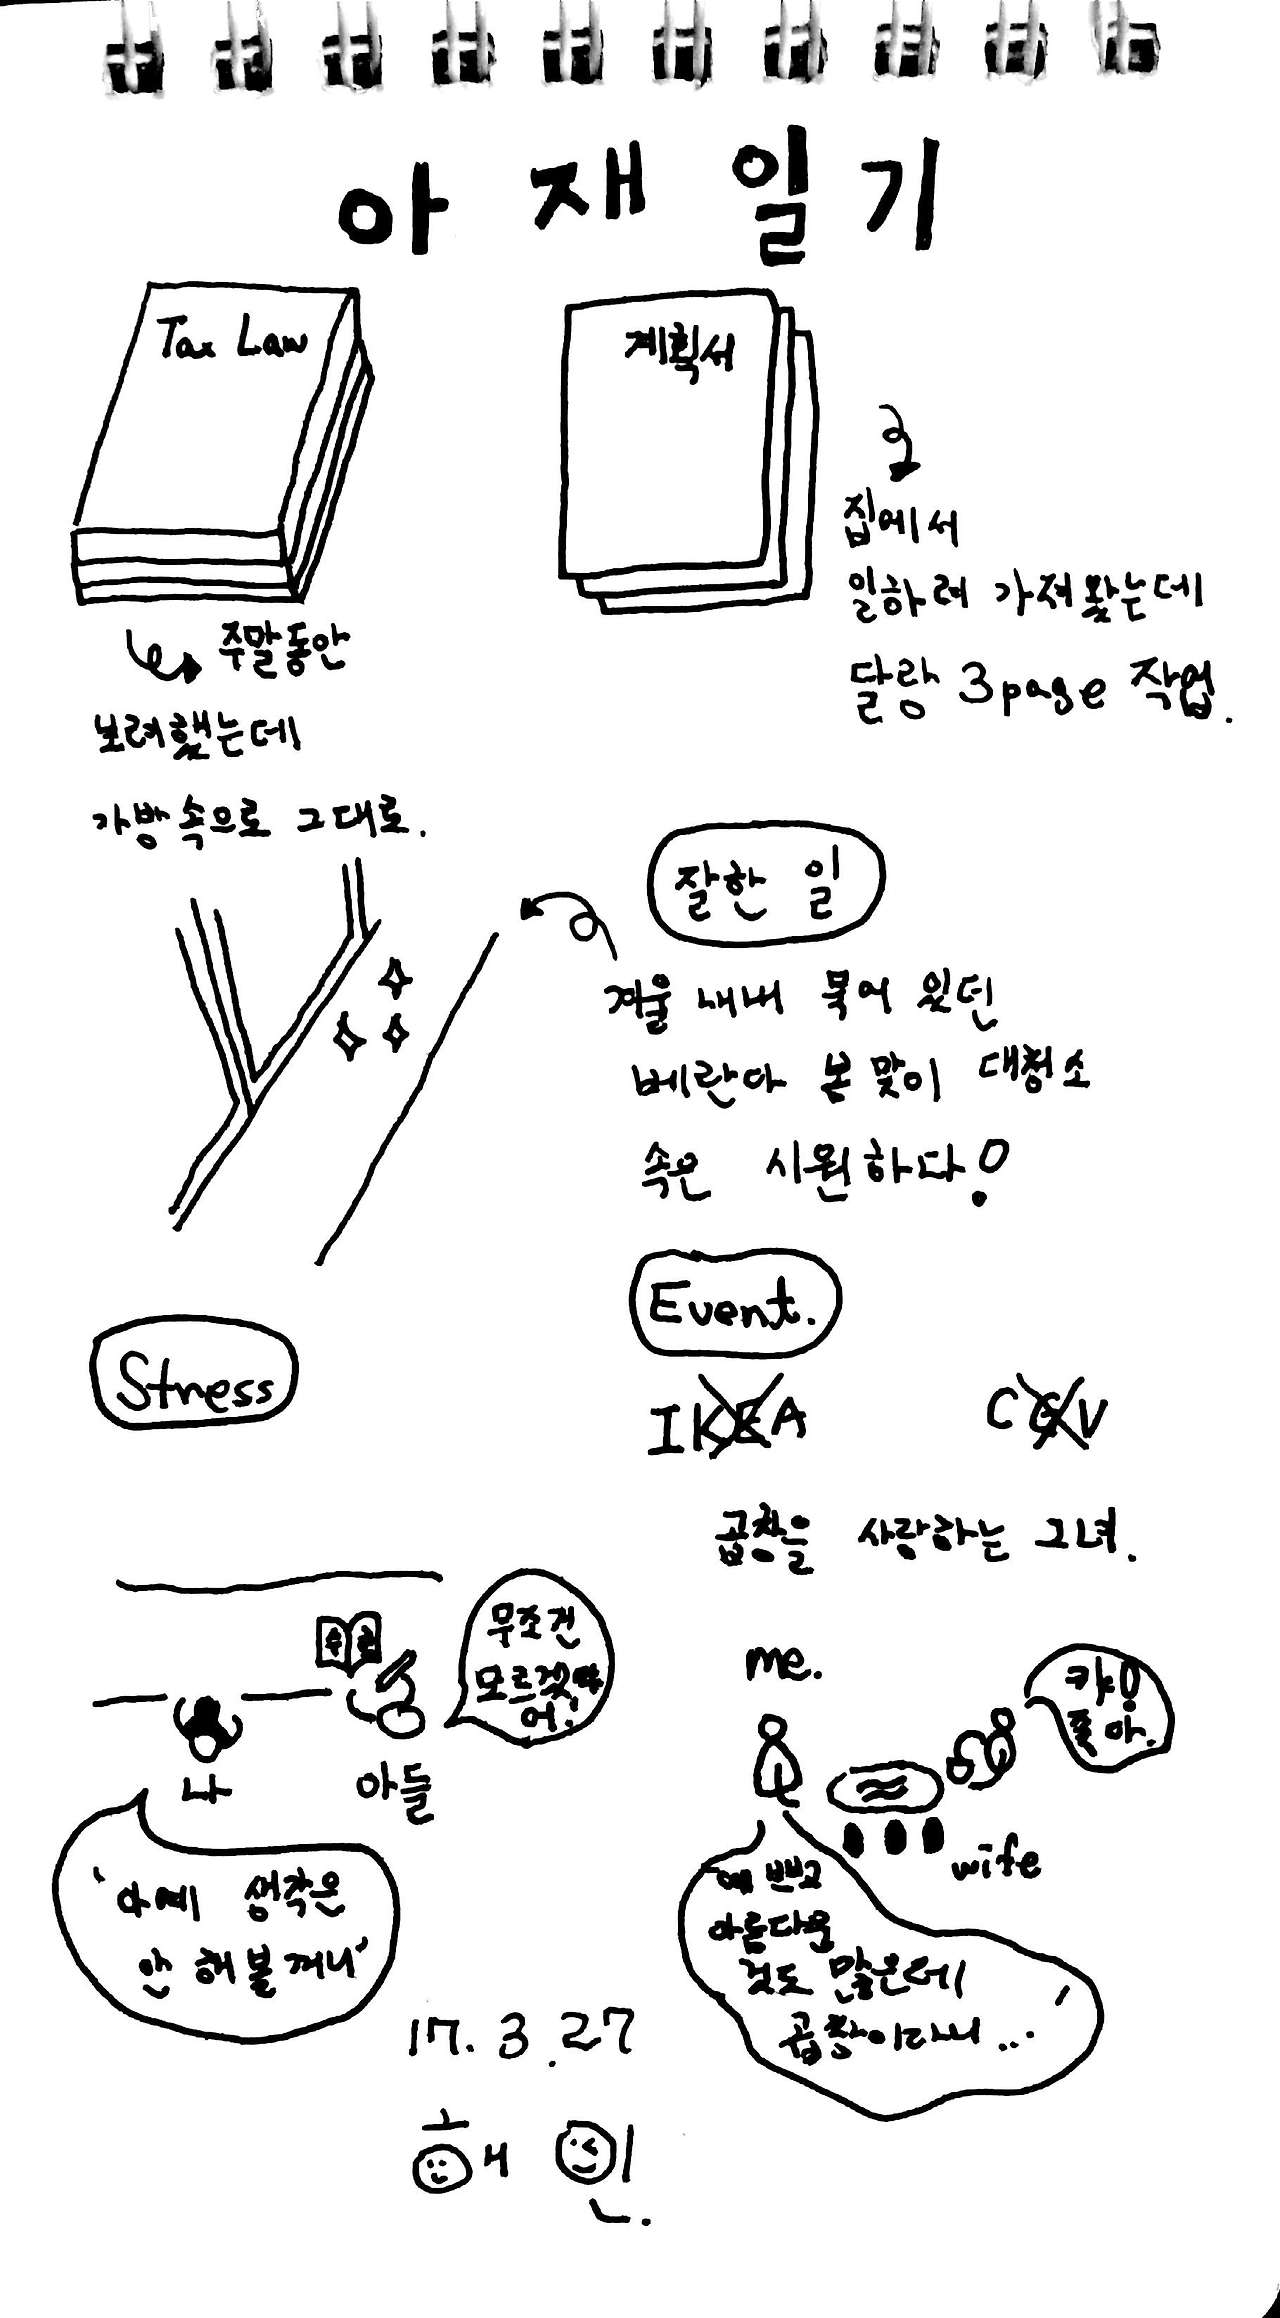 아재일기
Tax Law
주말동안
보려했는데
가방속으로 그대로.
계획서
집에서
일하려 가져왔는데
달랑 3page 작업.
잘한 일
겨울 내내 묵어 있던
베란다 봄맞이 대청소
속은 시원하다!
Stress
수학
무조건
모르겠
어!
나
아들
'아예 생각은
안 해볼꺼니'
Event.
IKEA
CGV
곱창을 사랑하는 그녀.
me.
캬!
좋아.
wife
'예쁘고
아름다운
것도 많은데
곱창이라니...'
17. 3. 27
해인.